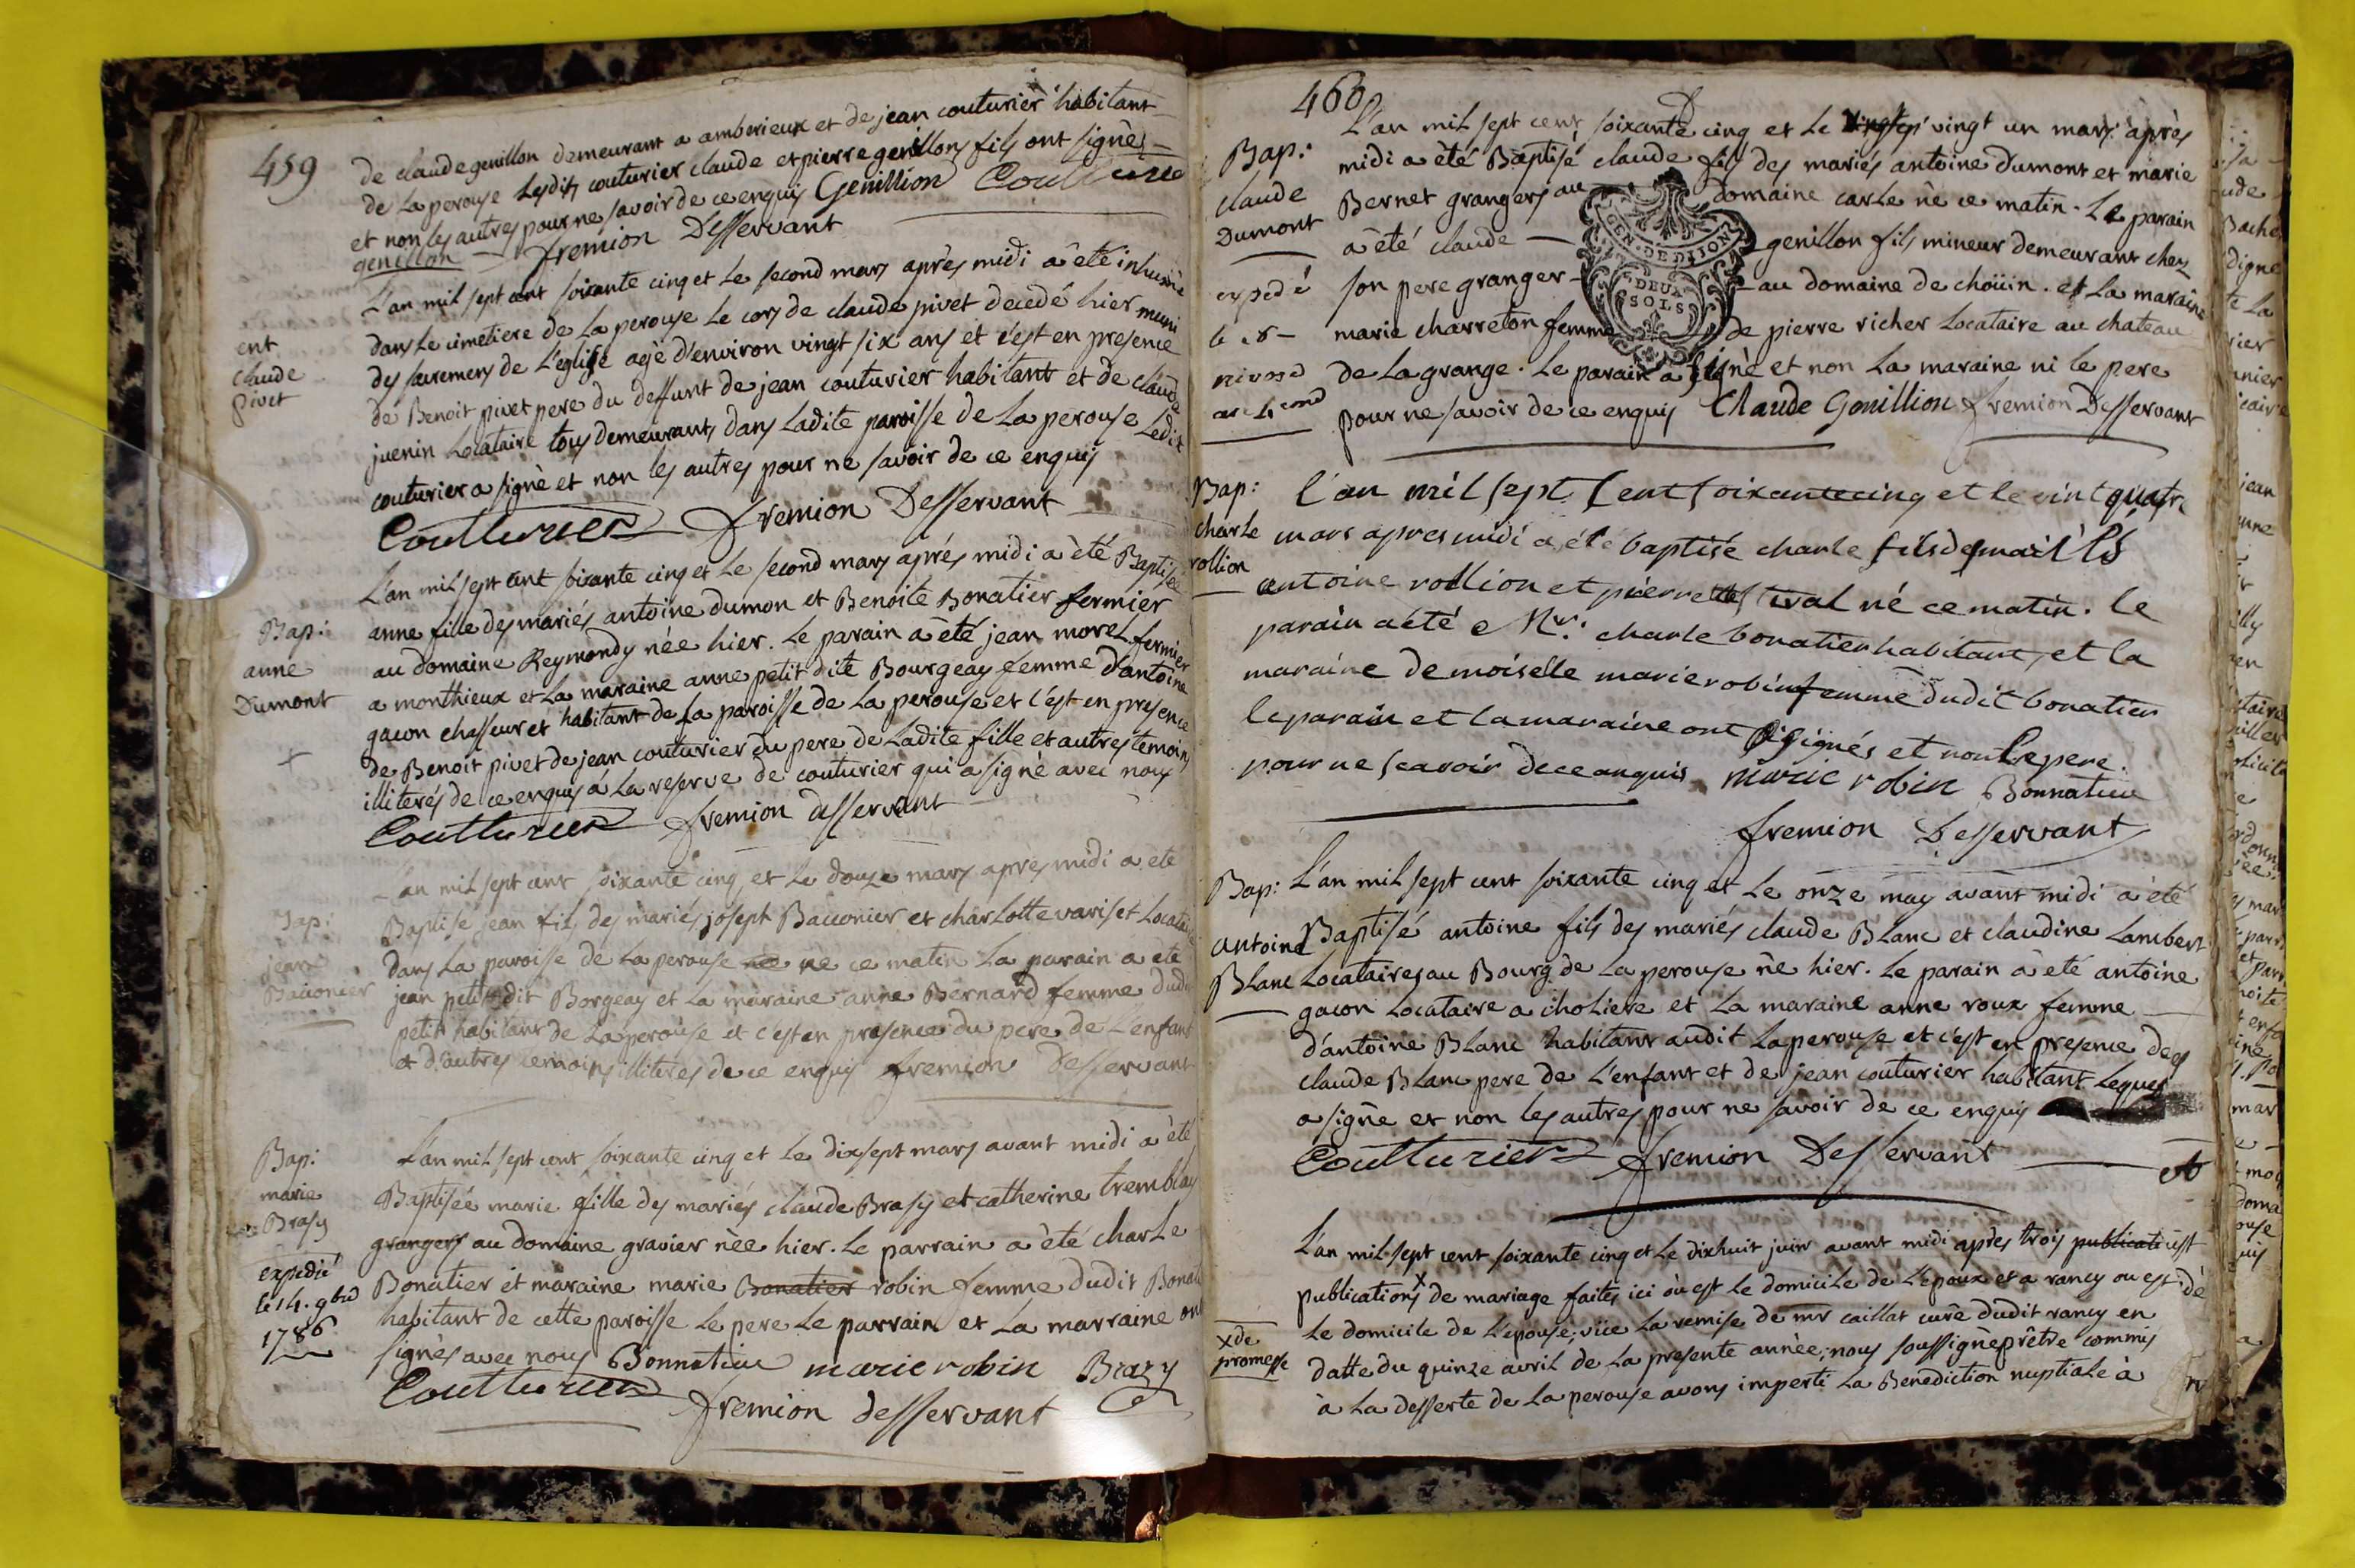 459
de claude genillon demeurant a amberieux et de jean couturier habitant
de La perouse Lesdits couturier claude et pierre genillons fils ont signès
et non les autres pour ne savoir de ce enquis Genillion Coutturier
genillon fremion Desservant
ent
claude
pivet
L'an mil sept cent soixante cinq et Le second mars après midi a èté inhumé
dans Le cimetiere de La perouse Le cors de claude pivet decedé hier muni
des sacremens de L'église agè d'environ vingt six ans et c'est en presence
de Benoit pivet pere du deffunt de jean couturier habitant et de claude
juenin Locataire tous demeurants dans Ladite paroisse de La perouse Ledit
couturier a signè et non les autres pour ne savoir de ce enquis
Coutturier fremion Desservant
Bap:
anne
Dumont
L'an mil sept cent soixante cinq et Le second mars après midi a èté Baptisée
anne fille des mariés antoine dumon et Benoite Bonatier fermier
au domaine Reymondy née hier. Le parain a èté jean morel fermier
a monthieux et La maraine anne petit dite Bourgeay femme d'antoine
gacon chasseur et habitant de La paroisse de La perouse et c'est en presence
de Benoit pivet de jean couturier du pere de Ladite fille et autres temoins
illiterés de ce enquis á La reserve de couturier qui a signè avec nous
Coutturier fremion desservant
Bap:
jean
Bacconier
L'an mil sept cent soixante cinq et Le douze mars après midi a eté
Baptisé jean fils des mariés joseph Bacconier et charlotte variset Locatai
dans La paroisse de La perouse né ce matin La parain a èté
jean petit dit Borgeay et La maraine anne Bernard femme dud
petit habitant de Laperouse et c'est en presence du pere de L'enfant
et d'autres temoins illiterés de ce enquis fremion Desservant
Bap:
marie
Brasy
expedié
le 14. 9bre
1786
L'an mil sept cent soixante cinq et Le dixsept mars avant midi a èté
Baptisée marie fille des mariés claude Brasy et catherine tremblay
grangers au domaine gravier nèe hier. Le parrain a èté charle
Bonatier et maraine marie Bonatier robin femme dudit Bonati
habitant de cette paroisse Le pere Le parrain et La marraine ont
signès avec nous Bonnatier marie robin Brazy
Coutturier fremion desservant
460
Bap:
claude
Dumont
expedié
le 18
nivose
an second
L'an mil sept cent soixante cinq et Le vingt un mars après
midi a èté Baptisé claude fils des mariés antoine Dumont et marie
Bernet grangers au domaine carle nè ce matin. Le parain
a èté claude genillon fils mineur demeurant chez
son pere granger au domaine de choüin. et La maraine
marie charreton femme de pierre richer Locataire au chateau
de Lagrange. Le parain a signè et non La maraine ni le pere
pour ne savoir de ce enquis Claude Gonillion fremion Desservant
GEN. DE DIJON
DEUX
SOLS
Bap:
charle
rollion
l'an mil sept Cent soixante cinq et le vint quatr
mars apres midi a éte baptisé charle fils des mariés
antoine rollion et pierrette estival né ce matin. le
parain a èté Mr: charle bonatier habitant, et la
maraine demoiselle marie robin femme dudit bonatier
le parain et la maraine ont signés et non le pere.
pour ne scavoir de ce anquis marie robin Bonnatier
fremion Desservant
Bap:
antoine
Blanc
L'an mil sept cent soixante cinq et Le onze may avant midi a èté
Baptisé antoine fils des mariés claude Blanc et claudine Lambert
Locataires au Bourg de La perouse nè hier. Le parain a èté antoine
gacon Locataire a choliere et La maraine anne roux femme
d'antoine Blanc habitant audit Laperouse et c'est en presence de
claude Blanc pere de L'enfant et de jean couturier habitant Lequel
a signè et non les autres pour ne savoir de ce enquis
Coutturier fremion Desservant
L'an mil sept cent soixante cinq et Le dixhuit juin avant midi après trois publicati
publications x de mariage faites ici où est Le domicile de L'epoux et a rancy ou est
Le domicile de L'epouse; vüe La remise de mr caillat curè dudit rancy en
datte du quinze avril de La presente annèe; nous soussignè prêtre commis
à La desserte de La perouse avons imperti La Benediction nuptiale à
x de
promesse